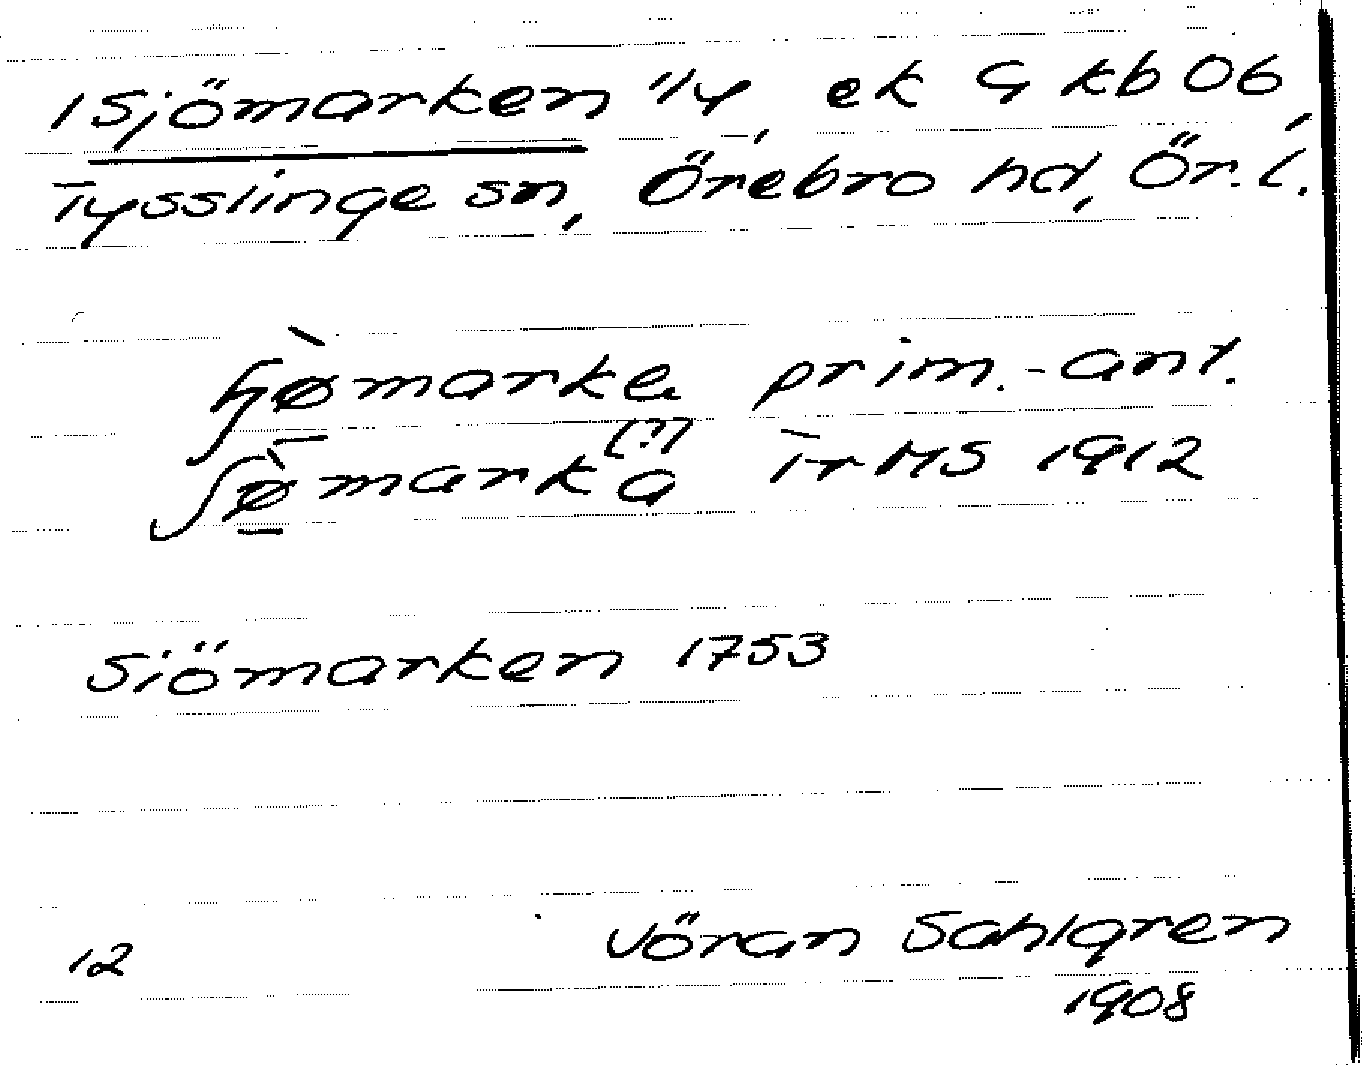 1 Sjömarken 1/4, ek G kb 06,
Tysslinge sn, Örebro hd, Ör. l.
prim.-ant.
TrHS 1912
Siömarken 1753
12 Jöran Sahlgren
1908